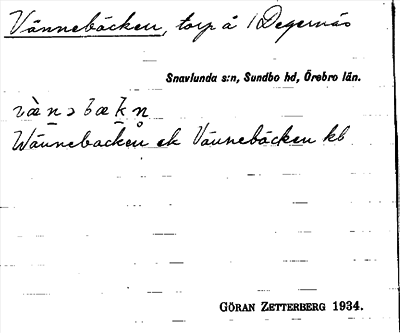 Vännebäcken, torp å /Degernäs
Snavlunda s:n, Sundbo hd, Örebro län.
væ̀nəbækn̥
Wännebacken ek Vännebäcken kb
GÖRAN ZETTERBERG 1934.